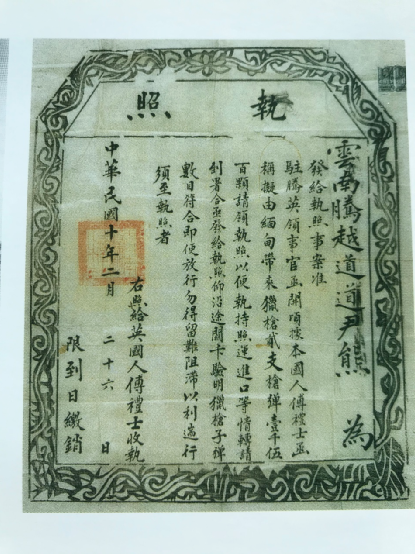 執照
雲南騰越道道尹熊 為
發給執照事案准
駐騰英領事官函開頃據本國人傅禮士函
稱擬由緬甸帶來獵槍貳支槍彈壹千伍
百顆請領執照以便執持照運進口等情轉請
到署合亟發給執照仰沿途關卡驗明獵槍子彈
數目符合即便放行勿得留難阻滯以利遄行
須至執照者
右照給英國人傅禮士收執
中華民國十年二月 二十六 日
限到日繳銷